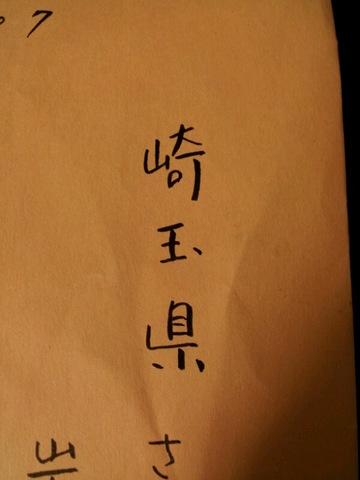 7
崎玉県さ